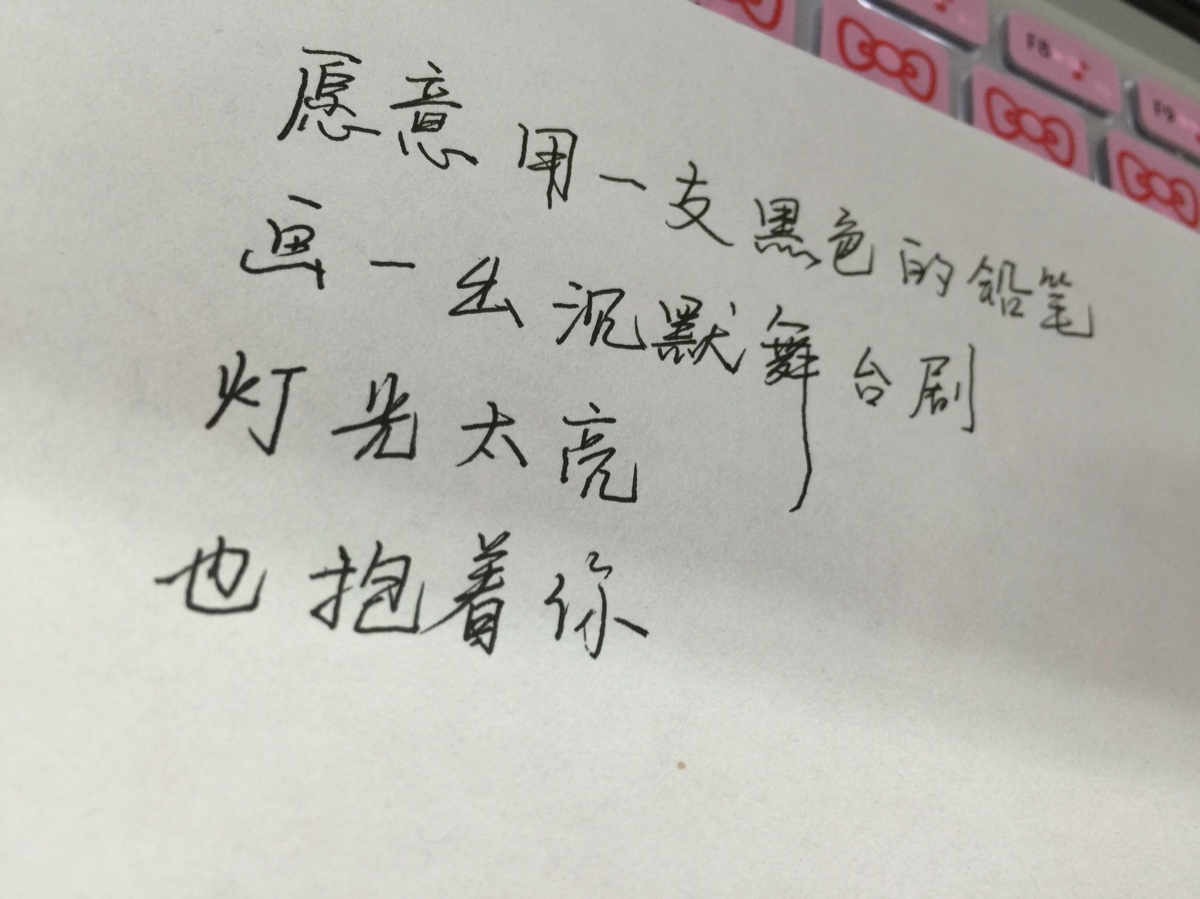 F8
F9
愿意用一支黑色的铅笔
画一出沉默舞台剧
灯光太亮
也抱着你